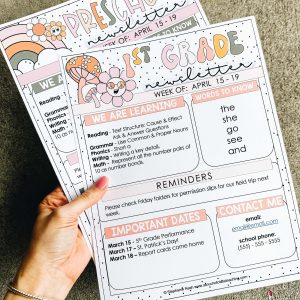 PRESCHO
newsletter
WEEK OF: APRIL 15 - 19
1ST GRADE
newsletter
WEEK OF: APRIL 15 - 19
WE ARE LEARNING
Reading - Text Structure: Cause & Effect
Ask & Answer Questions
Grammar - Use Common & Proper Nouns
Phonics - Short a
Writing - Writing a key detail.
Math - Represent all the number pairs of
10 as number bonds.
WORDS TO KNOW
the
she
go
see
and
REMINDERS
Please check Friday folders for permission slips for our field trip next
week.
IMPORTANT DATES
March 15 - 5th Grade Performance
March 17 - St. Patrick's Day!
March 18 - Report cards come home
CONTACT ME
email:
email@email.com
school phone:
(555) - 555 - 5555